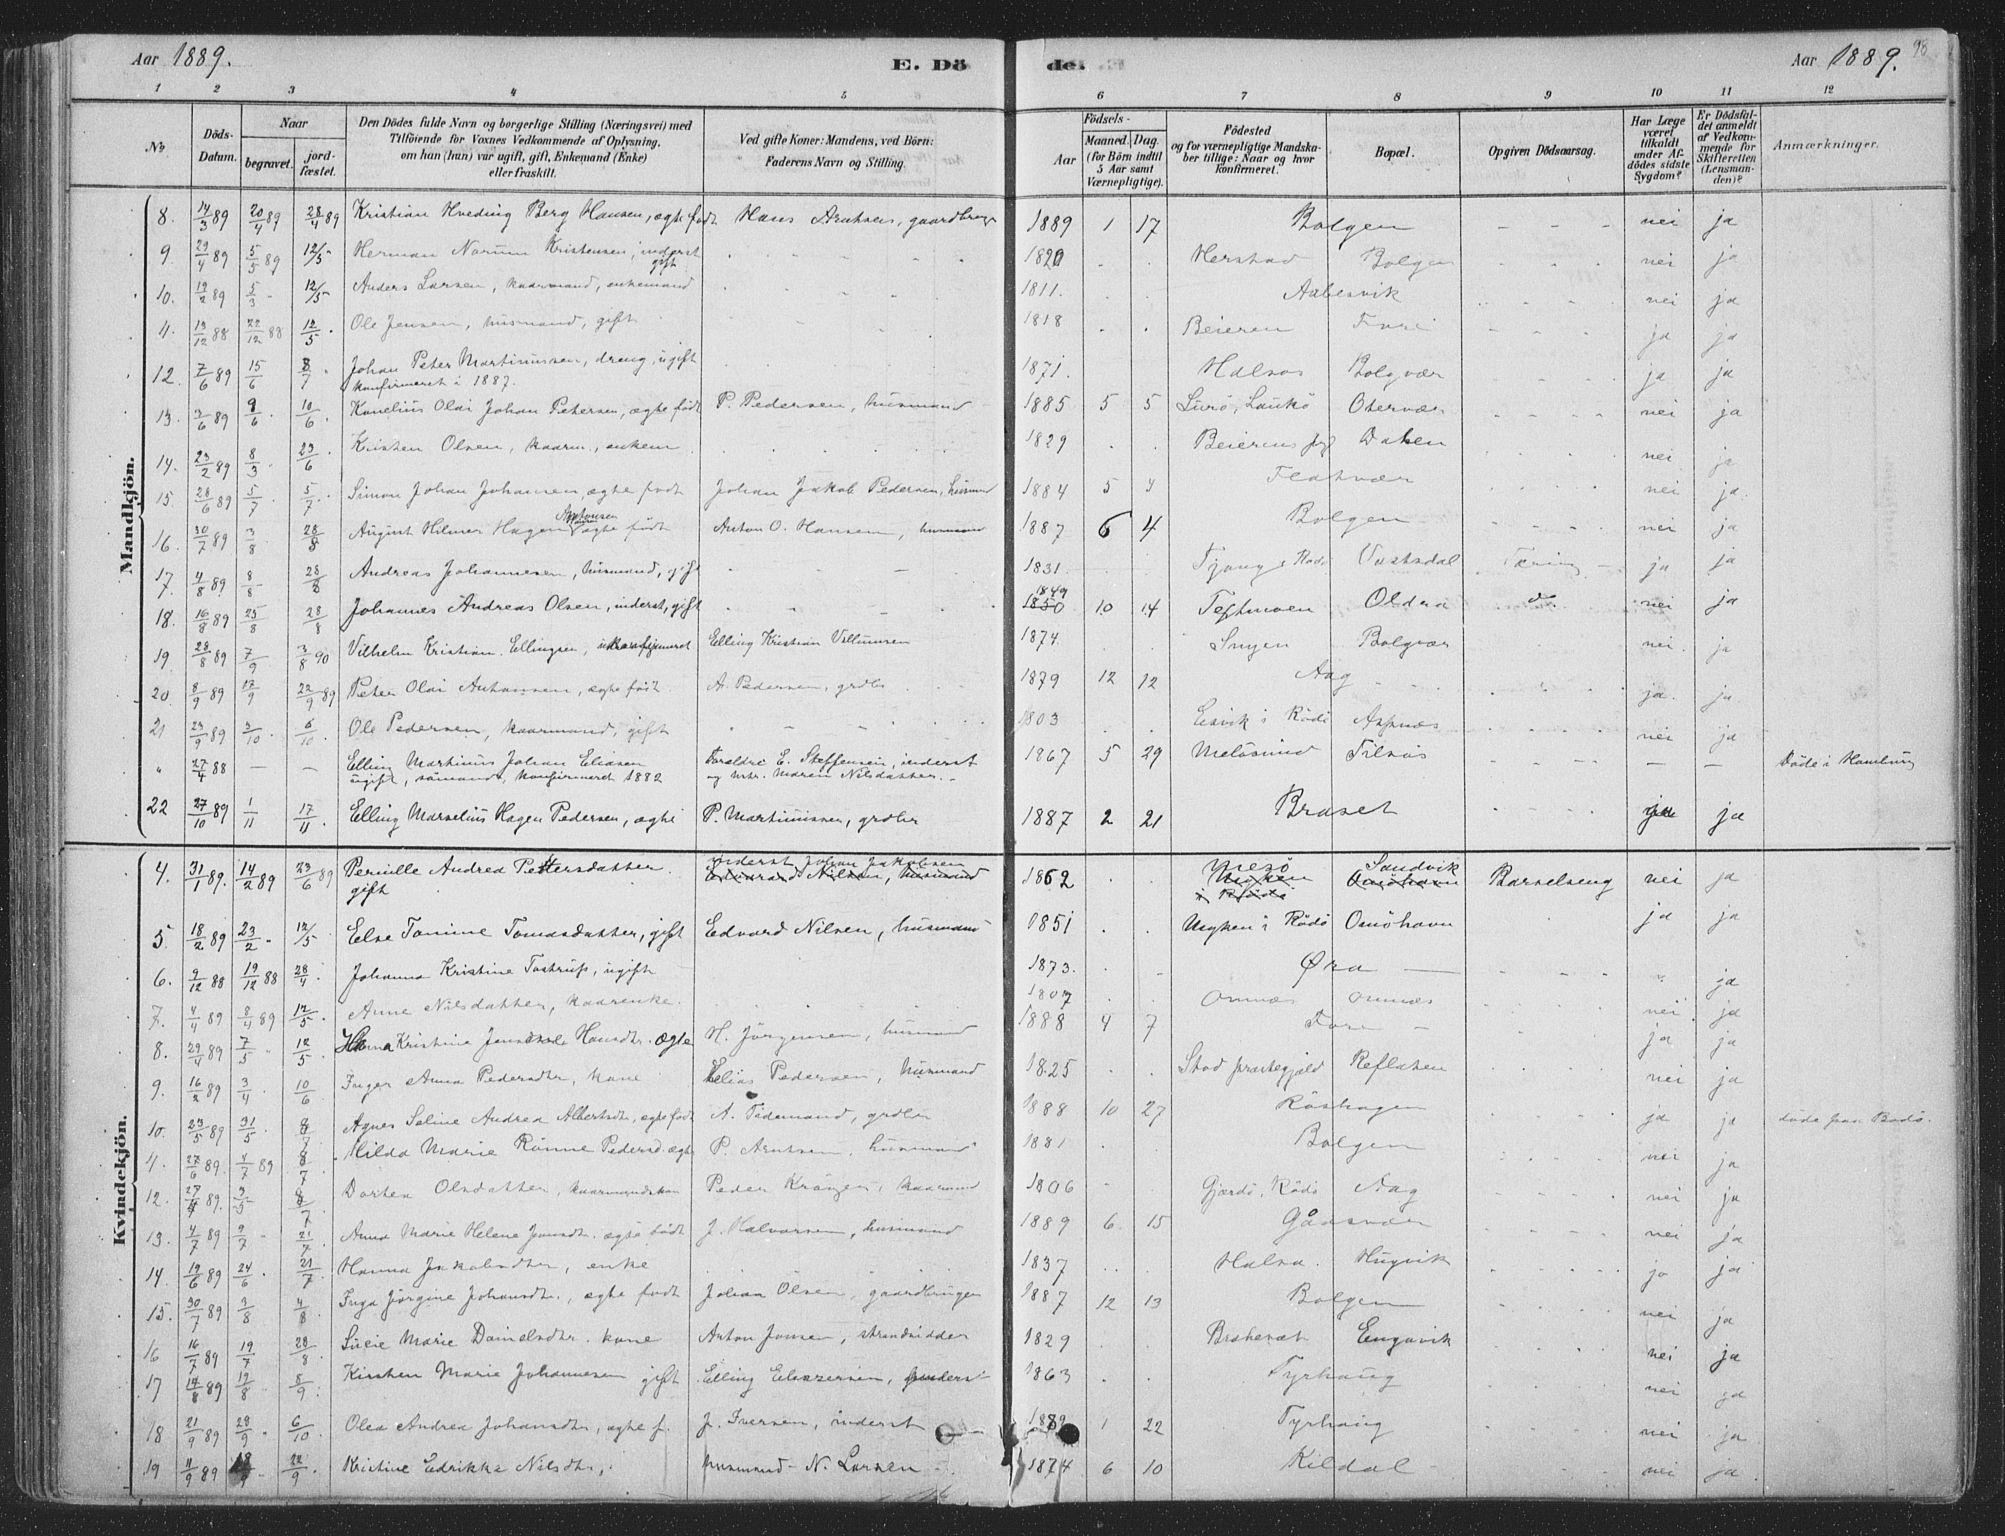 Aar 1889. E. Dö de. Aar 1889. 98
1 2 3 4 5 6 7 8 9 10 11 12
No Döds-Datum. Naar begravet. jordfæstet. Den Dödes fulde Navn og borgerlige Stilling (Næringsvei) med Tilföiende for Voxnes Vedkommende af Oplysning, om han (hun) var ugift, gift, Enkemand (Enke) eller fraskilt. Ved gifte Koner: Mandens, ved Börn: Faderens Navn og Stilling. Födsels- Aar Maaned. Dag. (for Börn indtil 5 Aar samt Værnepligtige). Födested og for værnepligtige Mandskaber tillige: Naar og hvor konfirmeret. Bopæl. Opgiven Dödsaarsag. Har Læge været tilkaldt under Afdödes sidste Sygdom? Er Dödsfaldet anmeldt af Vedkommende for Skifteretten (Lensmanden)? Anmærkninger.
Mandkjön.
8. 14/3 89 20/4 89 28/4 89 Kristian Hveding Berg Hansen, ægte født Hans Arntsen, gaardbruger 1889 1 17 Bolgen nei ja
9. 29/4 89 5/5 89 12/5 Herman Norum Kristensen, inderst gift 1820 Herstad Bolgen nei ja
10. 19/2 89 5/3 12/5 Anders Larsen, kaarmand, enkemand 1811. Aabesvik nei ja
11. 19/12 88 22/12 88 12/5 Ole Jensen, husmand, gift 1818 Beieren Fore ja ja
12. 7/6 89 15/6 8/7 Johan Peter Martinussen, dreng, ugift konfirmeret i 1887. 1871. Halsos Bolgvær ja ja
13. 3/6 89 9/6 10/6 Kornelius Olai Johan Petersen, ægte født P. Pedersen, husmand 1885 5 5 Lurø, Laukø Otervær nei ja
14. 23/2 89 8/3 23/6 Kristen Olsen, kaarm., enkem. 1829 Beierens pgj Dalen nei ja
15. 28/6 89 5/7 5/7 Simon Johan Johansen, ægte født Johan Jakob Pedersen, husmand 1884 5 4 Flatvær nei ja.
16. 30/7 89 3/8 28/8 August Hilmer Hagen Antonsen Hansen ægte født Anton O. Hansen, husmand 1887 6 4 Bolgen nei ja
17. 4/8 89 8/8 28/8 Andreas Johannesen, husmand, gift 1831. Tjong i Rødø Vastsdal Tæring ja ja
18. 16/8 89 25/8 28/8 Johannes Andreas Olsen, inderst, gift 1850 1849 10 14 Teksmoen Oldra do. nei ja
19. 28/8 89 7/9 3/8 90 Vilhelm Kristian Ellingsen, ukonfirmeret Elling Kristian Villumsen 1874. Inyen Bolgvær nei ja
20. 8/9 89 17/9 22/9 89 Peter Olai Antonsen, ægte født A. Pedersen, grdbr 1879 12 12 Aag ja ja
21 23/9 89 3/10 6/10 Ole Pedersen, kaarmand, gift 1803 Esvik i Rødø Aspnæs nei ja
" 27/4 88 — — Elling Martinus Johan Eliasen ugift, sømand, konfirmeret 1882 Foreldre E. Steffensen, inderst og hstr. Maren Nilsdatter. 1867 5 29 Meløsund Filsøs — — Døde i Hamburg
22 27/10 89 1/11 17/11 Elling Marselius Hagen Pedersen, ægte P. Martinussen, grdbr 1887 2 21 Braset ja ja
Kvindekjön.
4. 31/1 89. 14/2 89 23/6 89 Pernille Andrea Pettersdatter gift inderst Johan Jakobsen Edvard Nilsen, husmand 1862 Mesø Myken i Rødø Sandvik Omøhavn Barselseng nei ja
5. 18/2 89 23/2 12/5 Else Tomine Tomasdatter, gift Edvard Nilsen, husmand 1851 Myken i Rødø Omøhavn ja ja
6. 9/12 88 19/12 88 28/4 Johanna Kristine Tostrup, ugift 1873. Øra ja
7. 4/4 89 8/4 89 12/5 Anne Nilsdatter, kaarenke. 1807 Ornnæs Ornnæs nei ja
8. 29/4 89 7/5 12/5 Hanna Kristine Hansdtr. ægte H. Jørgensen, husmand 1888 4 7 Fore ja ja
9. 16/2 89 3/4 10/6 Inger Anna Pedersdtr, kone Elias Pedersen, husmand 1825 Stod præstegjæld Reflaten nei ja
10. 23/5 89 31/5 8/7 Agnes Seline Andrea Albertsdtr, ægte født A. Tidemand, grdbr 1888 10 27 Røshagen ja ja døde paa Bodø.
11. 27/6 89. 4/7 89 8/7 Hilda Marie Rønne Pedersd. ægte P. Arntsen, husmand 1881 Bolgen nei ja
12. 27/4 89. 3/5 8/7 Dortea Olsdatter, kaarmandskone Peder Krøger, kaarmand 1806 Gjærdø, Rødø Aag nei ja
13. 4/7 89 9/7 21/7 Anna Marie Helene Jensdtr. ægte født J. Halvorsen, husmand 1889 6. 15 Gåasvær nei ja
14. 19/6 89 24/6 21/7 Hanna Jakobsdtr, enke 1837 Halsa. Hugvik ja ja
15. 30/7 89 3/8 4/8 Inga Jørgine Johansdtr., ægte født Johan Olsen, gaardbruger 1887 12 13 Bolgen nei ja
16 16/7 89 19/7 28/8 Lucie Marie Danielsdtr. kone Anton Jensen, strandsidder 1829 Brækesæt Engavik nei ja
17 14/8 89 19/8 8/9 Kirsten Marie Johannesen gift Elling Eliesersen, inderst 1863 Tyrhaug nei ja
18 21/9 89 28/9 6/10 Olea Andrea Johansdtr, ægte f. J. Iversen, inderst 1889 1 22 Tyrhaug nei ja
19 11/9 89 18/9 22/9 Kristine Edrikke Nilsdtr, husmand N. Larsen 1874 6 10 Kildal nei ja.